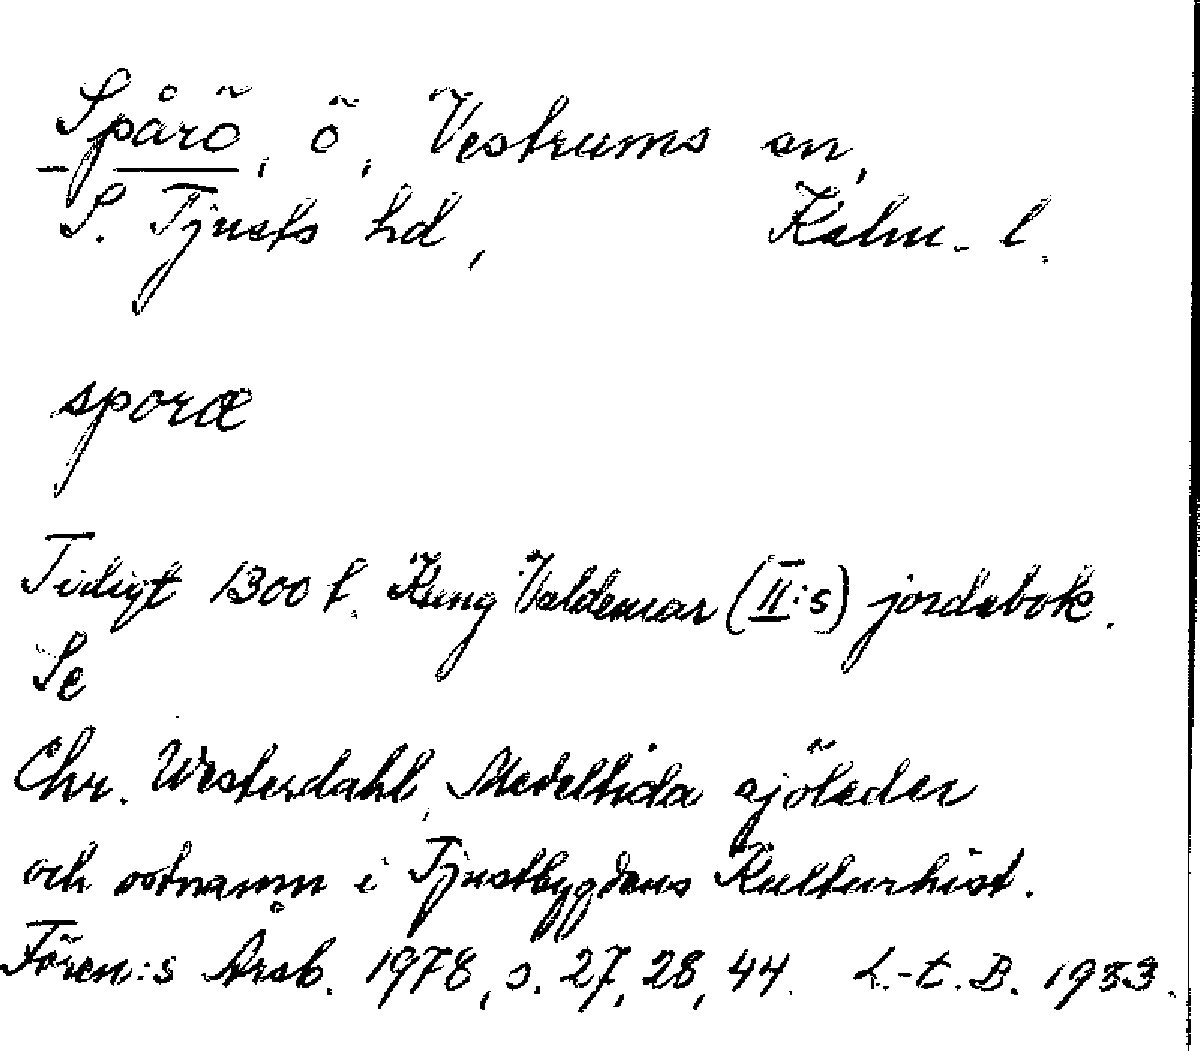 Spårö, ö, Vestrums sn,
S. Tjusts hd, Kalm. l.
sporæ
Tidigt 1300 t. Kung Valdemar (II:s) jordabok.
Se
Chr. Westerdahl, Medeltida sjöleder
och ostnamn i Tjustbygdens Kulturhist.
Fören:s Årsb. 1978, s. 27, 28, 44. L.-t. B. 1983.